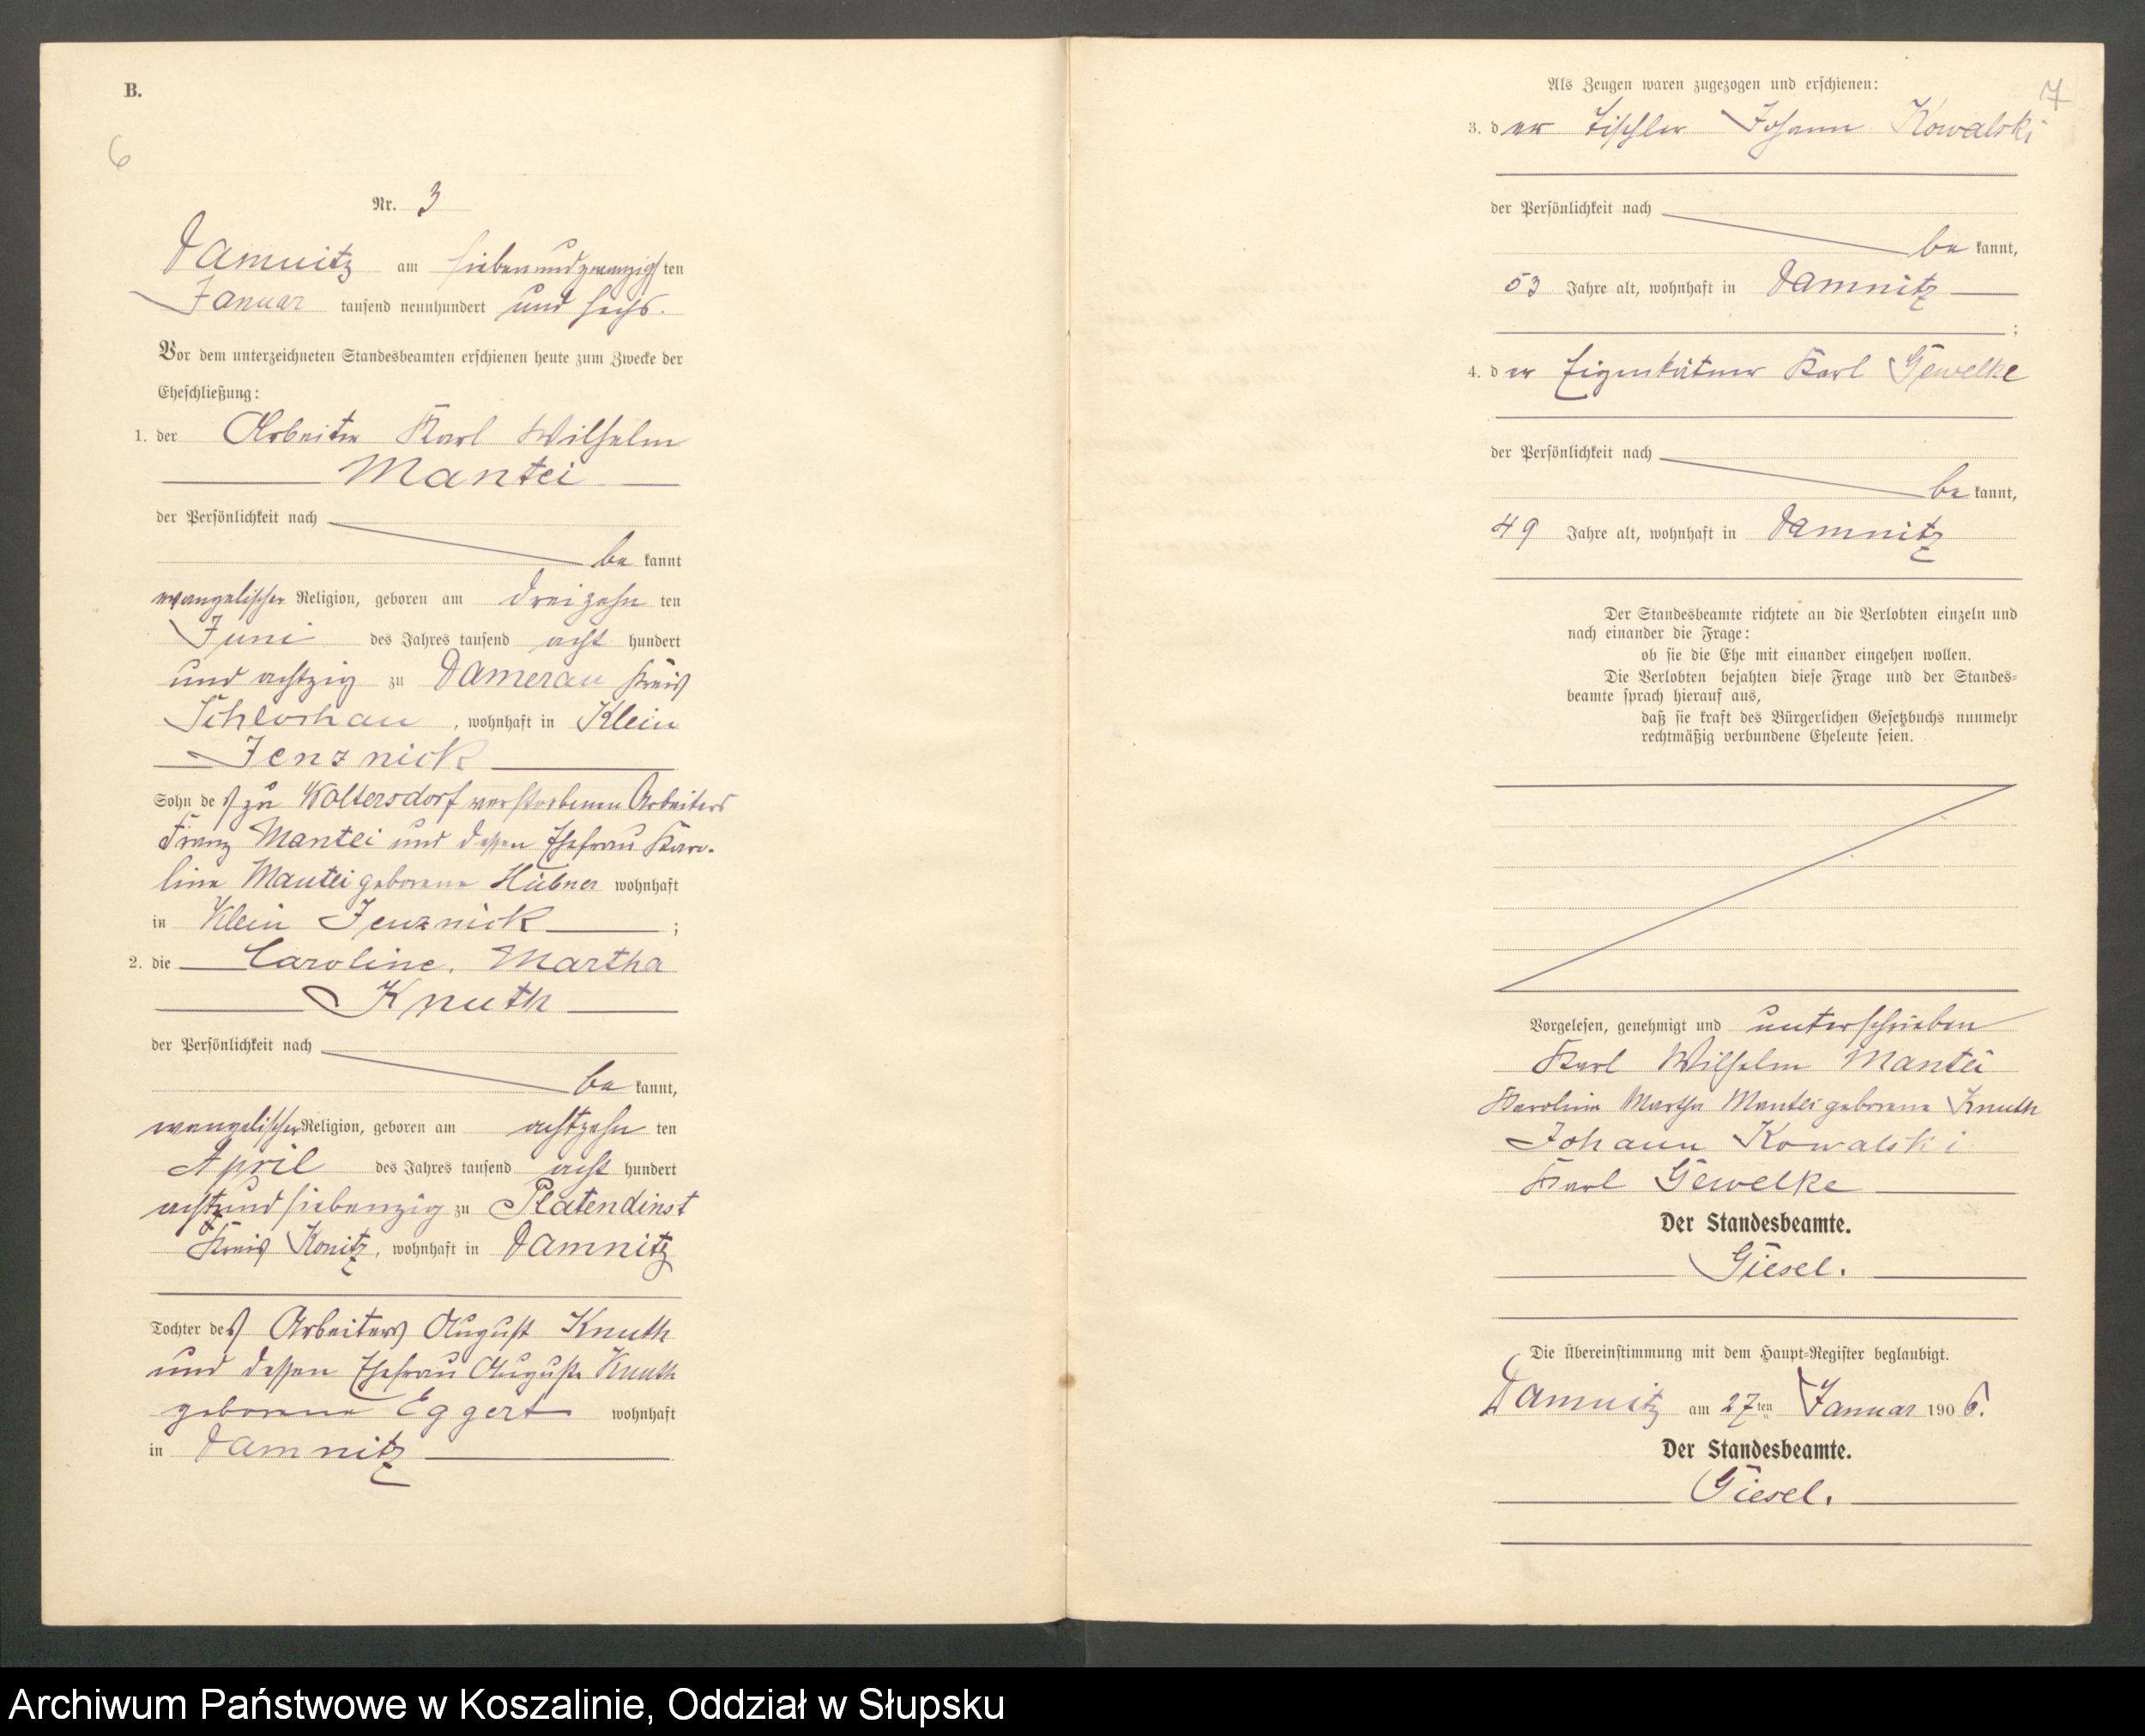 B.
6
Nr. 3
Damnitz am siebenundzwanzigsten
Januar tausend neunhundert und sechs.
Vor dem unterzeichneten Standesbeamten erschienen heute zum Zwecke der
Eheschließung:
1. der Arbeiter Karl Wilhelm
Mantei
der Persönlichkeit nach
be kannt
evangelischer Religion, geboren am dreizehn ten
Juni des Jahres tausend acht hundert
und achtzig zu Damerau Kreis
Schlochau, wohnhaft in Klein
Jenznick
Sohn des zu Woltersdorf verstorbenen Arbeiters
Franz Mantei und dessen Ehefrau Karo-
line Mantei geborene Hübner wohnhaft
in Klein Jenznick ;
2. die Caroline, Martha
Knuth
der Persönlichkeit nach
be kannt,
evangelischer Religion, geboren am achtzehn ten
April des Jahres tausend acht hundert
achtundsiebenzig zu Platendinst
Kreis Konitz, wohnhaft in Damnitz
Tochter des Arbeiters August Knuth
und dessen Ehefrau Auguste Knuth
geborene Eggert wohnhaft
in Damnitz
7
Als Zeugen waren zugezogen und erschienen:
3. der Tischler Johann Kowalski
der Persönlichkeit nach
be kannt,
53 Jahre alt, wohnhaft in Damnitz
;
4. der Eigenkätner Karl Gewelke
der Persönlichkeit nach
be kannt,
49 Jahre alt, wohnhaft in Damnitz
Der Standesbeamte richtete an die Verlobten einzeln und
nach einander die Frage:
ob sie die Ehe mit einander eingehen wollen.
Die Verlobten bejahten diese Frage und der Standes-
beamte sprach hierauf aus,
daß sie kraft des Bürgerlichen Gesetzbuchs nunmehr
rechtmäßig verbundene Eheleute seien.
Vorgelesen, genehmigt und unterschrieben
Karl Wilhelm Mantei
Karoline Martha Mantei geborene Knuth
Johann Kowalski
Karl Gewelke
Der Standesbeamte.
Giesel.
Die Übereinstimmung mit dem Haupt-Register beglaubigt.
Damnitz am 27ten Januar 1906.
Der Standesbeamte.
Giesel.
Archiwum Państwowe w Koszalinie, Oddział w Słupsku